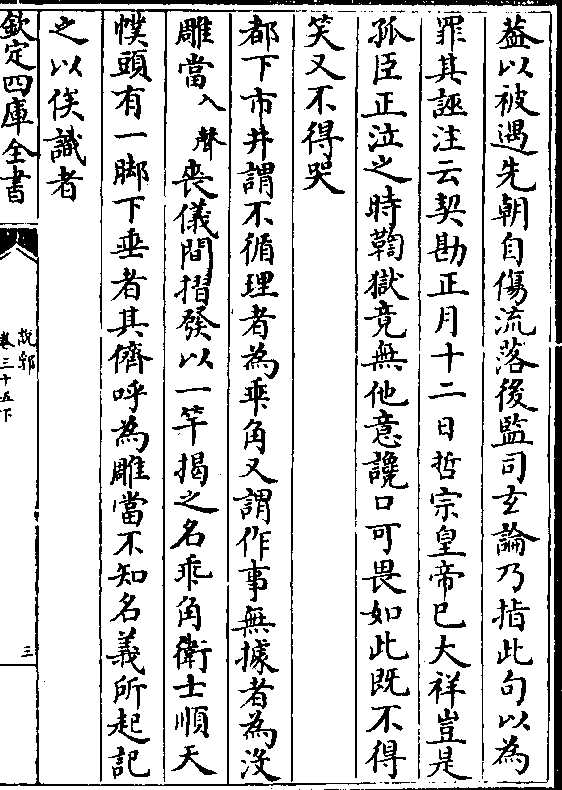 葢以被遇先朝自傷流落後監司玄論乃指此句以為
罪其誣注云契勘正月十二日哲宗皇帝已大祥豈是
孤臣正泣之時鞫獄竟無他意讒口可畏如此既不得
笑又不得哭
都下市井謂不循理者為乖角又謂作事無據者為沒
雕當入聲喪儀間摺發以一竿揭之名乖角衛士順天
幞頭有一脚下垂者其儕呼為雕當不知名義所起記
之以俟識者
欽定四庫全書
説郛
卷三十五下
三